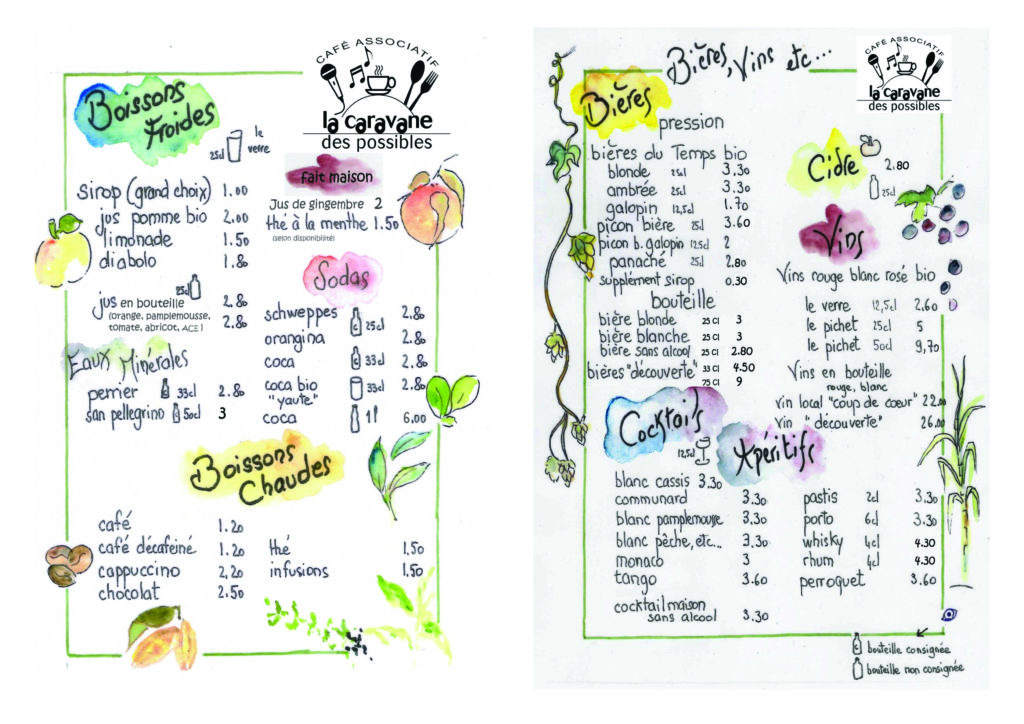 CAFÉ ASSOCIATIF
la caravane
des possibles
Boissons
Froides
25cl
le
verre
sirop (grand choix) 1.00
jus pomme bio 2.00
limonade 1.50
diabolo 1.80
25cl
jus en bouteille 2.80
(orange, pamplemousse,
tomate, abricot, ACE) 2.80
Eaux Minérales
perrier 33cl 2.80
san pellegrino 50cl 3
Fait maison
Jus de gingembre 2
thé à la menthe 1.50
(selon disponibilité)
Sodas
schweppes 2.80
c 25cl
orangina 2.80
coca c 33cl 2.80
coca bio 33cl 2.80
"yaute"
coca 1l 6.00
Boissons
Chaudes
café 1.20
café décafeiné 1.20
cappuccino 2,20
chocolat 2.50
thé 1.50
infusions 1.50
Bières, Vins etc...
CAFÉ ASSOCIATIF
la caravane
des possibles
Bières
pression
bières du Temps bio
blonde 25cl 3.30
ambrée 25cl 3.30
galopin 12,5cl 1.70
picon bière 25cl 3.60
picon b. galopin 12.5cl 2
panaché 25cl 2.80
supplément sirop 0.30
bouteille
bière blonde 25 Cl 3
bière blanche 25 Cl 3
bière sans alcool 25 Cl 2.80
bières "découverte" 33 Cl 4.50
75 Cl 9
Cidre 2.80
25cl
Vins
Vins rouge blanc rosé bio
le verre 12,5cl 2.60
le pichet 25cl 5
le pichet 50cl 9,70
Vins en bouteille
rouge, blanc
vin local "coup de coeur" 22.00
vin "découverte" 26.00
Cocktails
12,5cl
Apéritifs
blanc cassis 3.30
communard 3.30
blanc pamplemousse 3.30
blanc pêche, etc... 3.30
monaco 3
tango 3.60
cocktail maison
sans alcool 3.30
pastis 2cl 3.30
porto 6cl 3.30
whisky 4cl 4.30
rhum 4cl 4.30
perroquet 3.60
c bouteille consignée
bouteille non consignée